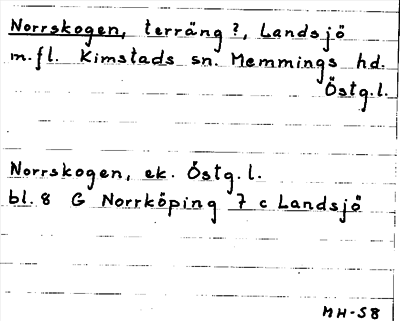 Norrskogen, terräng?, Landsjö
m.fl. Kimstads sn. Memmings hd.
Östg.l.
Norrskogen, ek. Östg.l.
bl. 8 G Norrköping 7 c Landsjö
MH-58